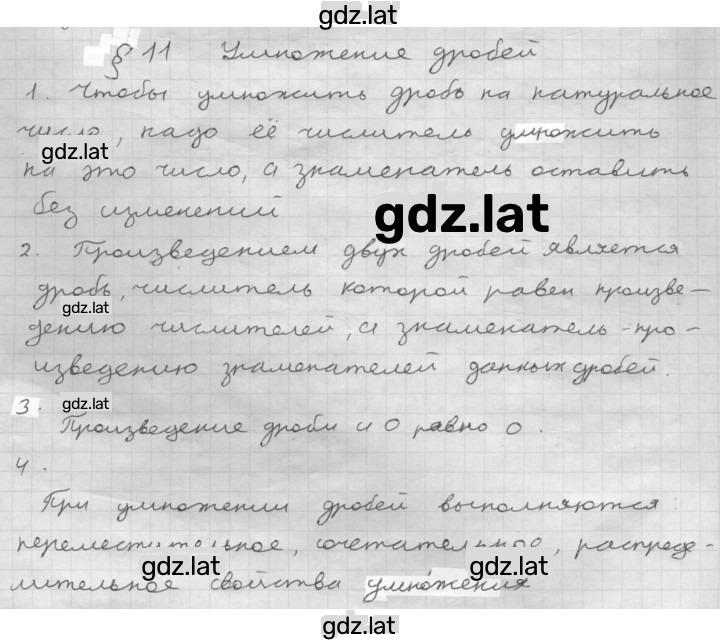 gdz.lat
§ 11 Умножение дробей
1. Чтобы умножить дробь на натуральное
число, надо её числитель умножить
gdz.lat
на это число, а знаменатель оставить
без изменений
gdz.lat
2. Произведением двух дробей является
дробь, числитель которой равен произве-
gdz.lat
дению числителей, а знаменатель - про-
изведению знаменателей данных дробей.
gdz.lat
3.
Произведение дроби и 0 равно 0.
4.
При умножении дробей выполняются
переместительное, сочетательное, распреде-
gdz.lat
gdz.lat
лительное свойства умножения
gdz.lat